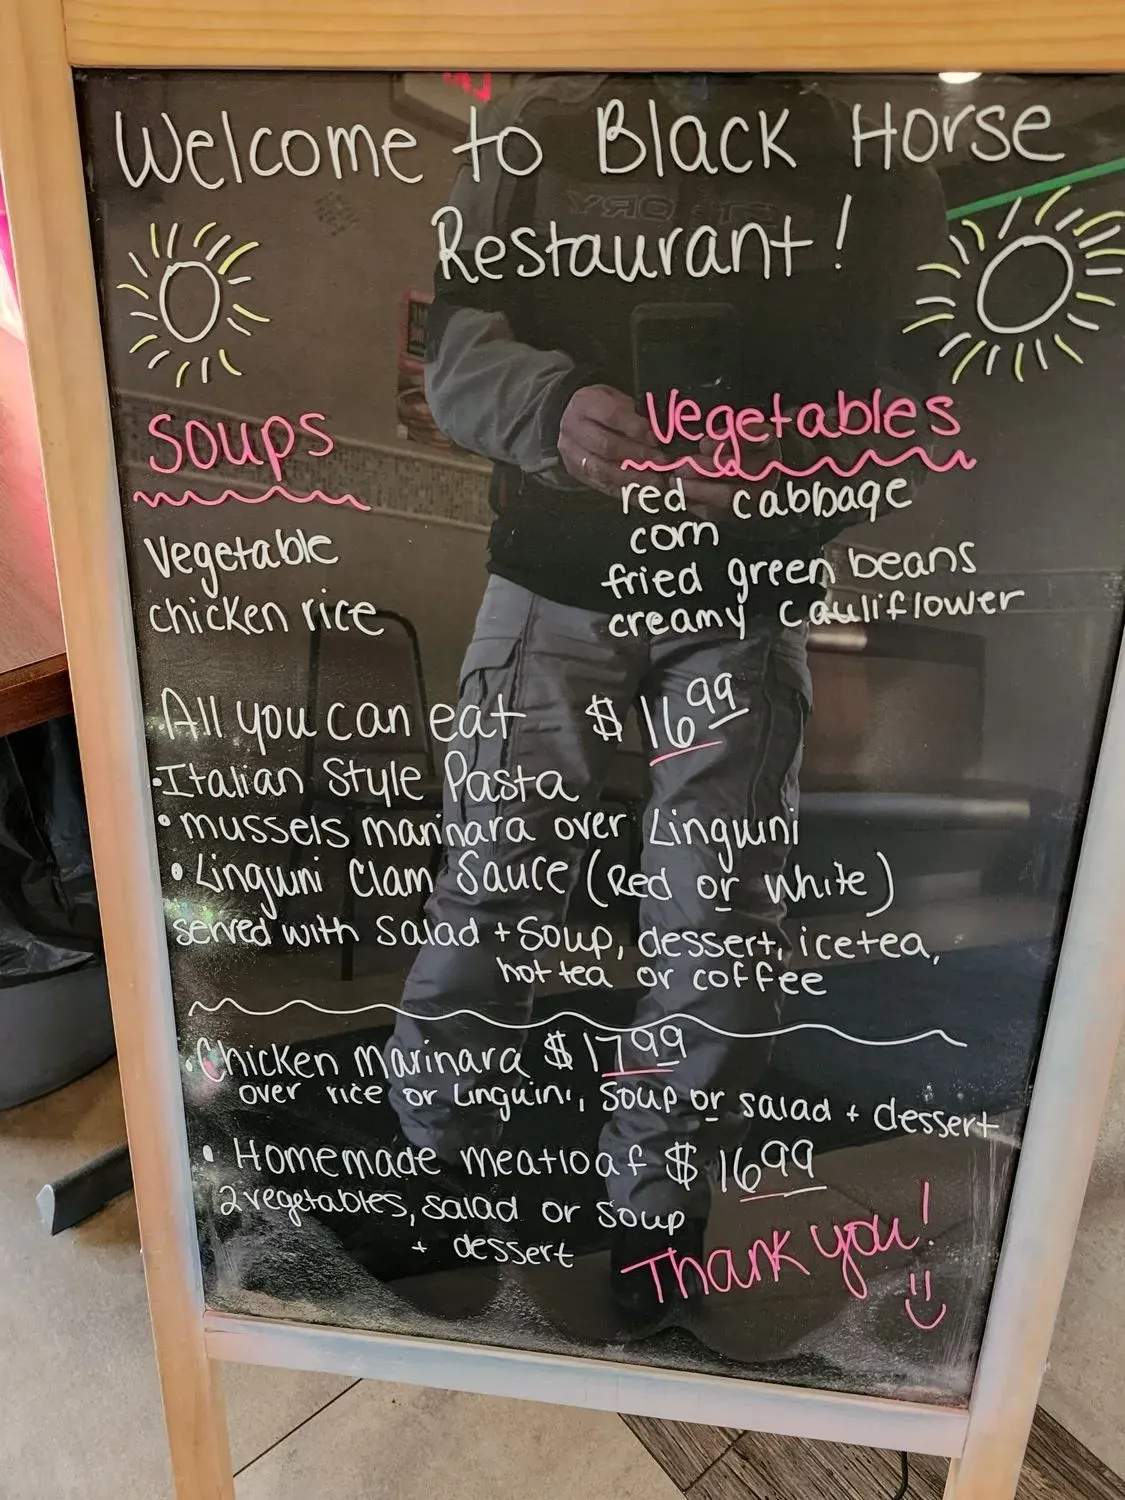 Welcome to Black Horse
Restaurant!
Soups
Vegetable
chicken rice
Vegetables
red cabbage
corn
fried green beans
creamy cauliflower
All you can eat $16.99
• Italian Style Pasta
• mussels marinara over Linguini
• Linguini Clam Sauce (Red or White)
served with Salad + Soup, dessert, icetea,
hot tea or coffee
• Chicken Marinara $17.99
over rice or Linguini, Soup or salad + dessert
• Homemade meatloaf $16.99
2 vegetables, salad or Soup
+ dessert
Thank you!